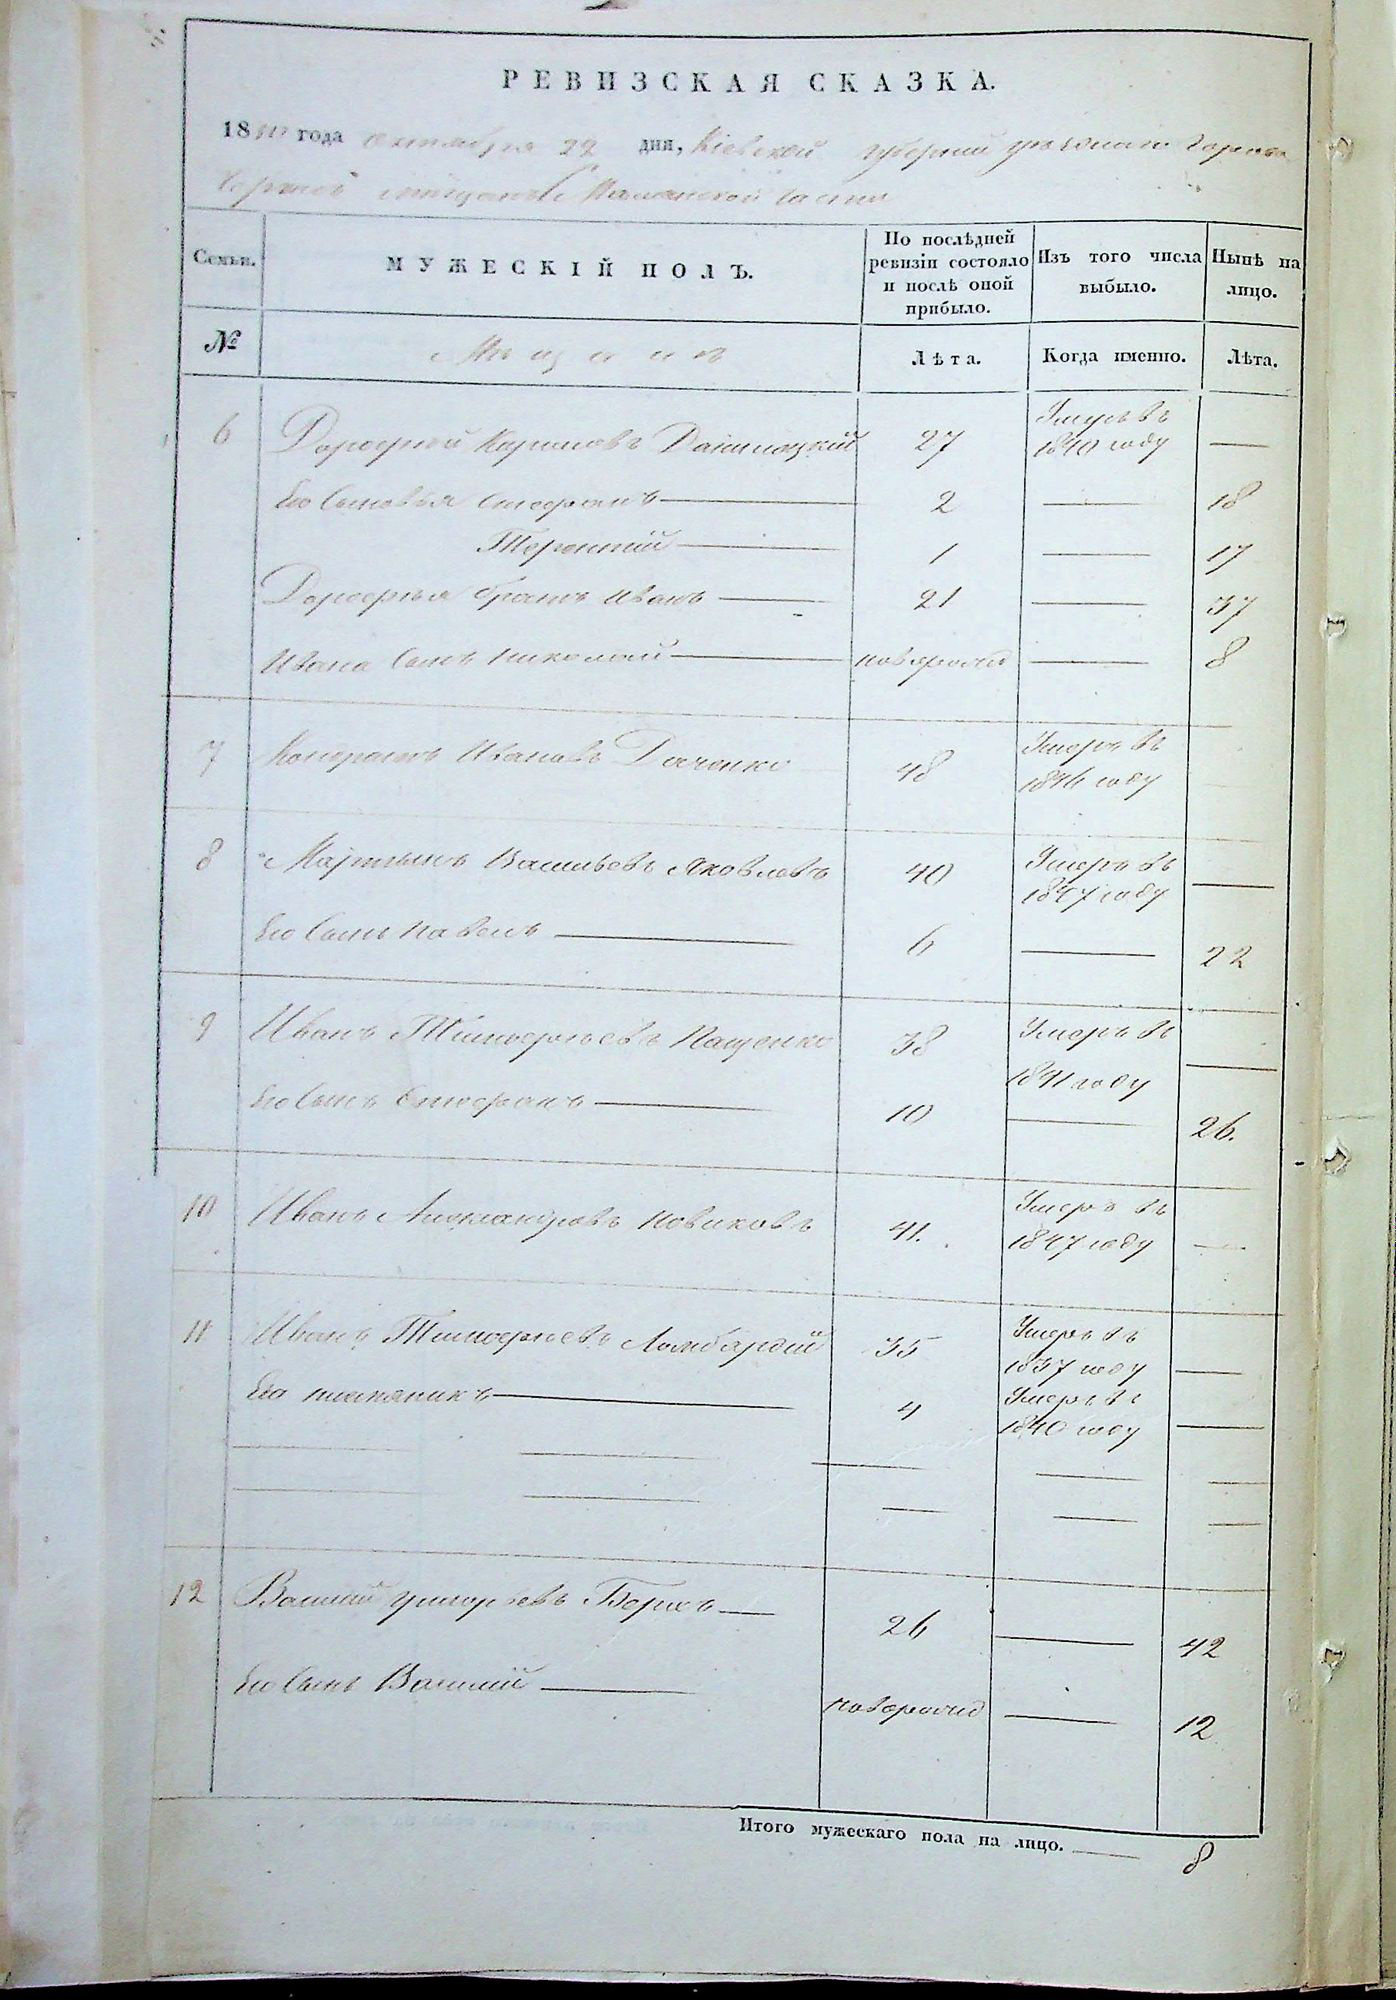 РЕВИЗСКАЯ СКАЗКА.
18 года Октября 22 дня, Кіевской губерніи уѣзднаго города
мѣщанъ части
Семьи. МУЖЕСКІЙ ПОЛЪ. По послѣдней ревизіи состояло и послѣ оной прибыло. Изъ того числа выбыло. Нынѣ на лицо.
№ Мѣщанъ Лѣта. Когда именно. Лѣта.
6 Дорофей 27 Умеръ въ 1840 году —
Его Сыновья Стефанъ — 2 — 18
Терентій — 1 — 17
Дорофея братъ Иванъ — 21 — 37
Ивана Сынъ Николай — новорожд — 8
7 Ивановъ 48 Умеръ въ 1846 году
8 Мартынъ Васильевъ Яковлевъ 40 Умеръ въ 1847 году —
Его Сынъ Павелъ — 6 — 22
9 Иванъ Тимофеевъ Пащенко 38 Умеръ въ 1841 году —
Его Сынъ Стефанъ — 10 — 26.
10 Иванъ Александровъ Новиковъ 41. Умеръ въ 1847 году —
11 Иванъ Тимофеевъ Ломбардій 35 Умеръ въ 1837 году —
Его племяникъ — 4 Умеръ въ 1840 году —
12 Василій Григорьевъ — 26 — 42
Его Сынъ Василій — новорожд — 12
Итого мужескаго пола на лицо. — 8